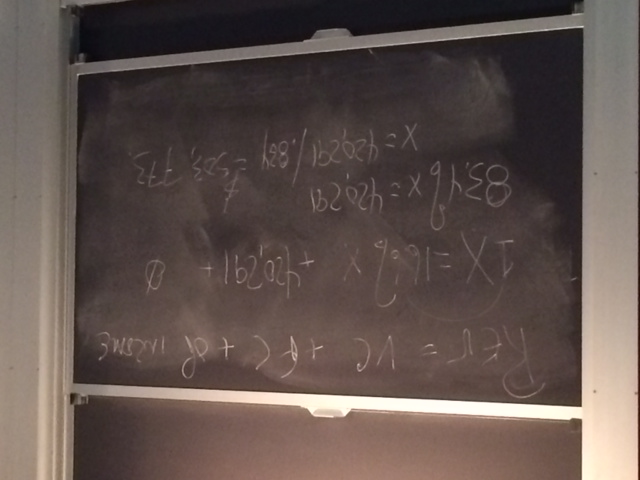 REV = VC + FC + OP INCOME
1X = 16.6% x + 420,291 + Ø
83.4% x = 420,291
x = 420,291/.834 = $503,773.